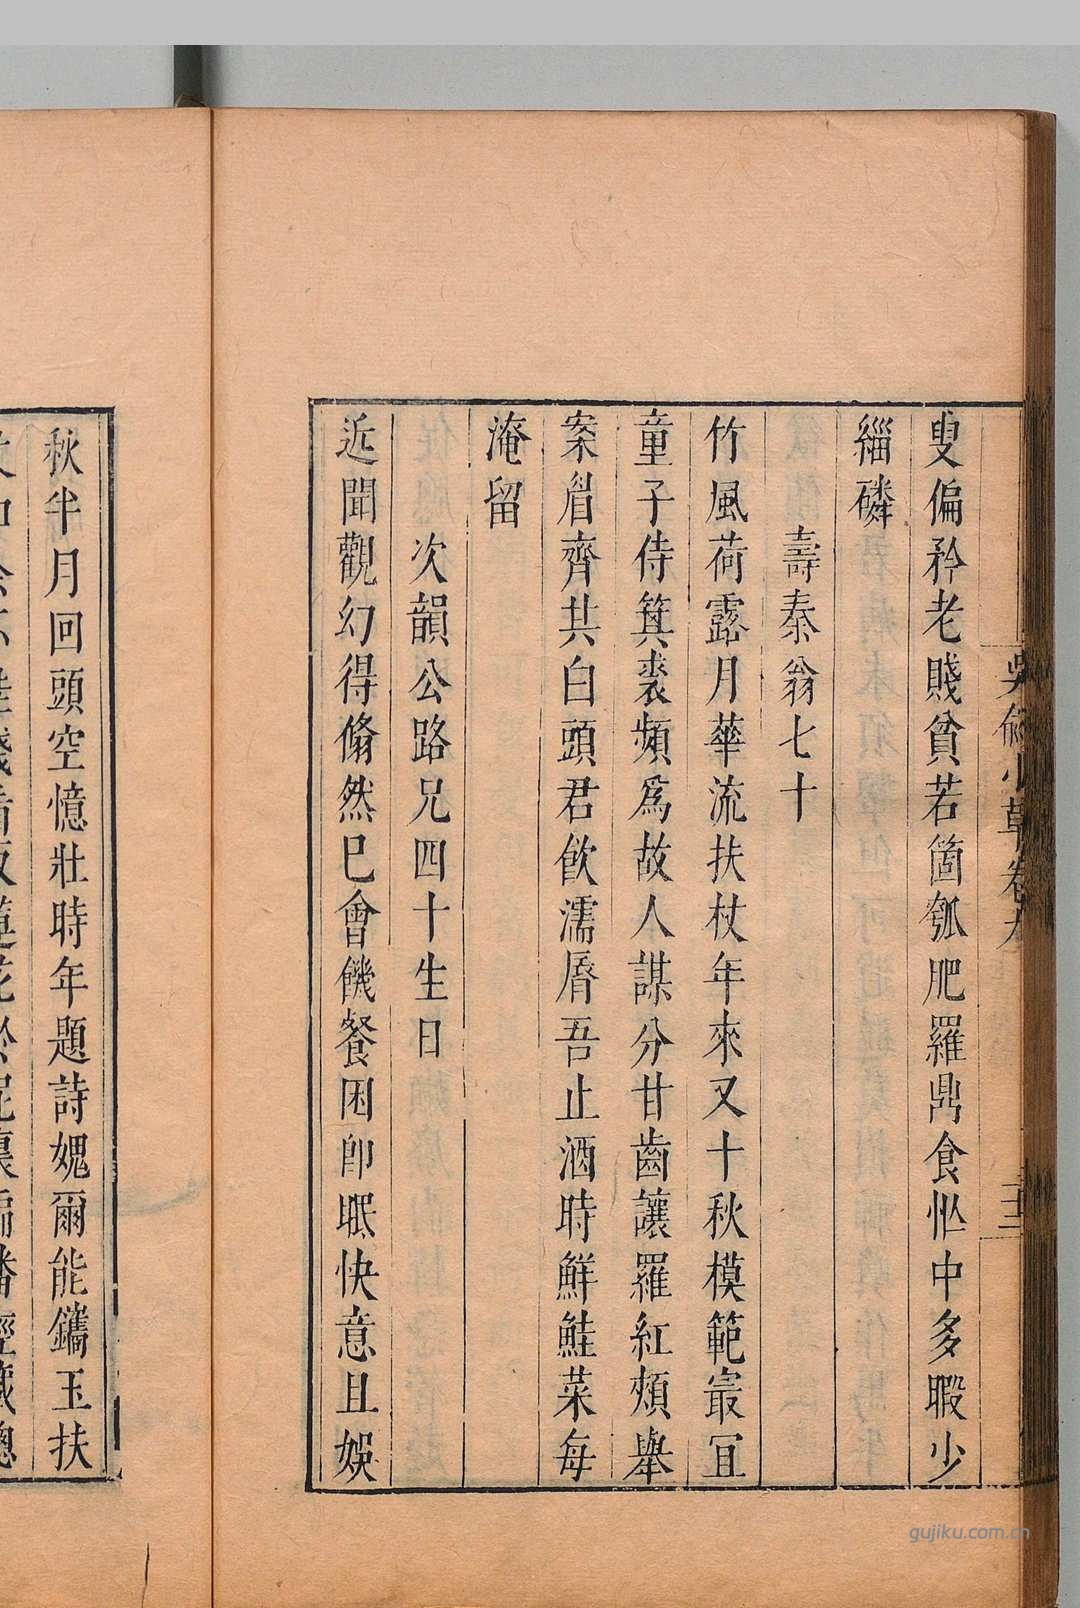 叟偏矜老賤貧若箇瓠肥羅鼎食怭中多暇少
緇磷
壽秦翁七十
竹風荷露月華流扶杖年來又十秋模範㝡宜
童子侍箕裘頻爲故人謀分甘齒讓羅紅頰舉
案眉齊共白頭君飮濡脣吾止酒時鮮鮭菜每
淹留
次韻公路兄四十生日
近聞觀幻得翛然巳會饑餐困卽眠快意且娛
秋半月回頭空憶壯時年題詩媿爾能鐫玉扶
卷九
十二
gujiku.com.cn